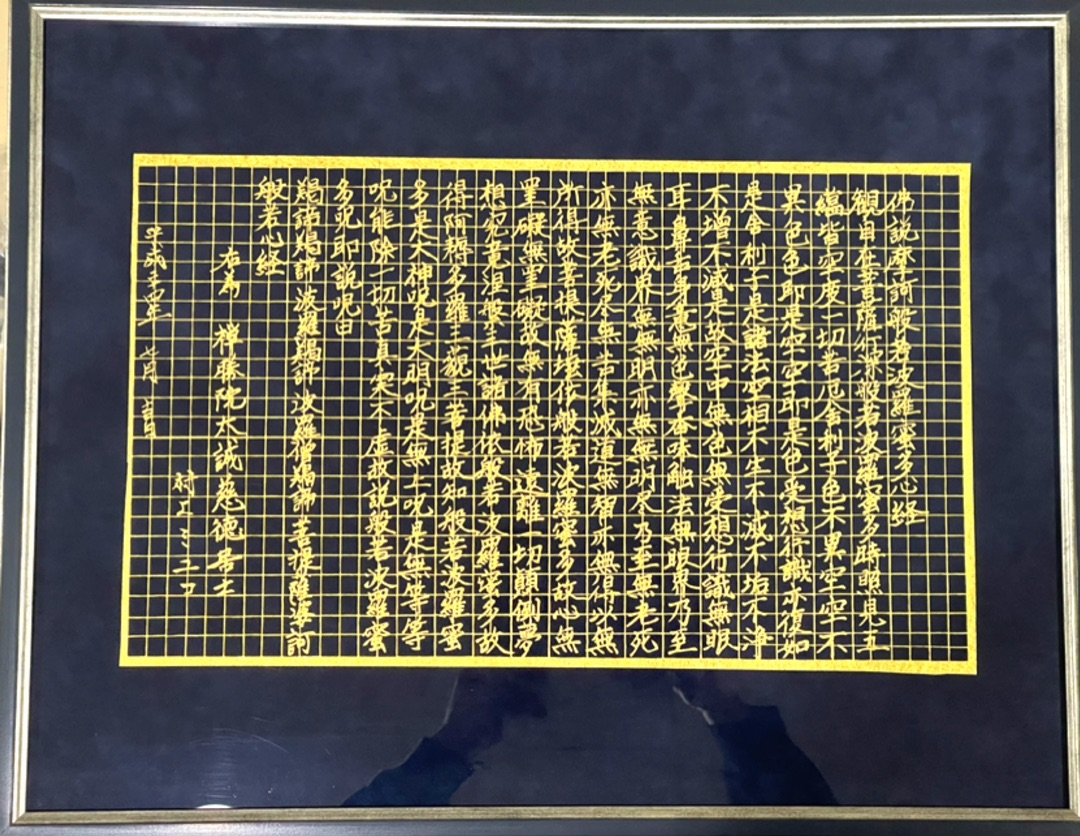 佛説摩訶般若波羅蜜多心経
観自在菩薩行深般若波羅蜜多時照見五
蘊皆空度一切苦厄舎利子色不異空空不
異色色即是空空即是色受想行識亦復如
是舎利子是諸法空相不生不滅不垢不浄
不増不減是故空中無色無受想行識無眼
耳鼻舌身意無色聲香味触法無眼界乃至
無意識界無無明亦無無明尽乃至無老死
亦無老死尽無苦集滅道無智亦無得以無
所得故菩提薩埵依般若波羅蜜多故心無
罣礙無罣礙故無有恐怖遠離一切顛倒夢
想究竟涅槃三世諸佛依般若波羅蜜多故
得阿耨多羅三藐三菩提故知般若波羅蜜
多是大神呪是大明呪是無上呪是無等等
呪能除一切苦真実不虚故説般若波羅蜜
多呪即説呪曰
羯諦羯諦 波羅羯諦 波羅僧羯諦 菩提薩婆訶
般若心経
右為 禅勝院大誠慈徳居士
村上ミユコ
平成 年 七月 吉日